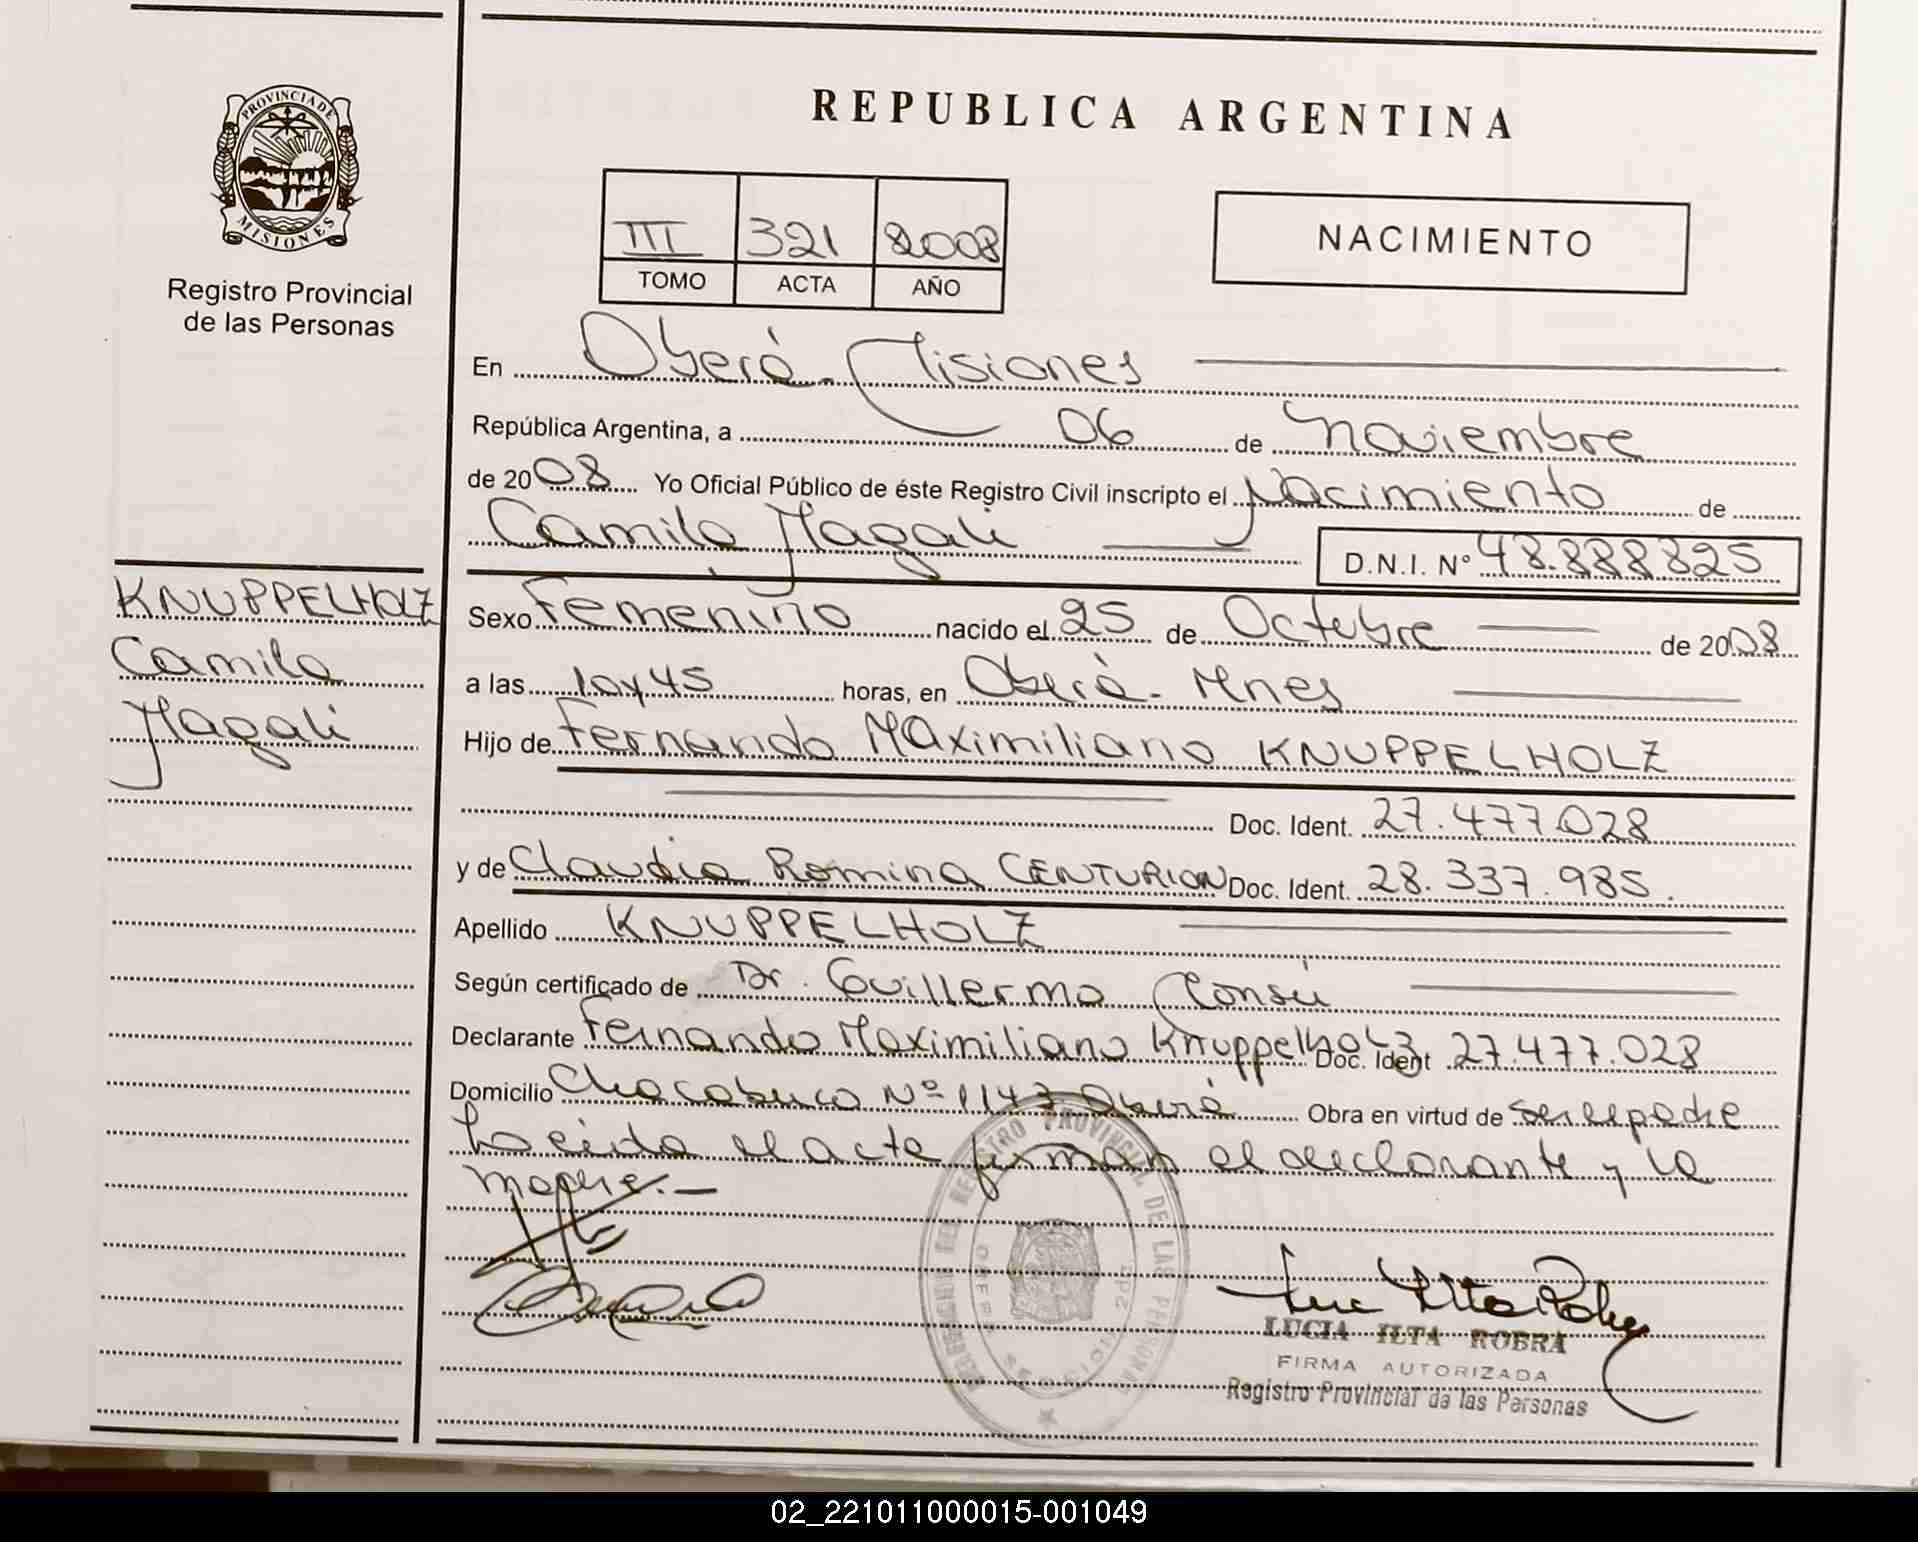 PROVINCIA DE
MISIONES
Registro Provincial
de las Personas
KNUPPELHOLZ
Camila
Magali
REPUBLICA ARGENTINA
III 321 2008
TOMO ACTA AÑO
NACIMIENTO
En Oberá - Misiones
República Argentina, a 06 de noviembre
de 2008 Yo Oficial Público de éste Registro Civil inscripto el Nacimiento de
Camila Magali D.N.I. Nº 48.888825
Sexo Femenino nacido el 25 de Octubre de 2008
a las 10 y 45 horas, en Oberá - Mnes
Hijo de Fernando Maximiliano KNUPPELHOLZ
Doc. Ident. 27.477.028
y de Claudia Romina CENTURION Doc. Ident. 28.337.985.
Apellido KNUPPELHOLZ
Según certificado de Dr. Guillermo Monsú
Declarante Fernando Maximiliano Knuppelholz Doc. Ident 27.477.028
Domicilio Chacabuco Nº 1147 Oberá Obra en virtud de ser el padre
Leída el acta firman el declarante y la
madre.-
DELEGACION DEL REGISTRO PROVINCIAL DE LAS PERSONAS
OBERA SECCION 2da
LUCIA ILTA ROBRA
FIRMA AUTORIZADA
Registro Provincial de las Personas
02_221011000015-001049